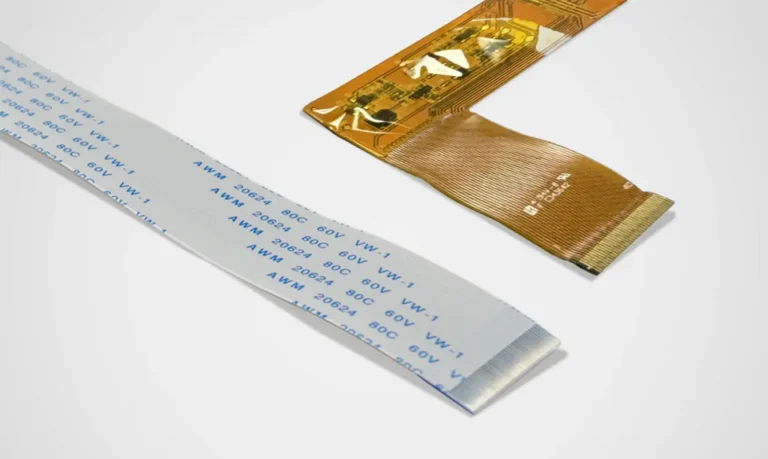 80C 60V VW-1
24 80C 60V VW-1
80C 60V VW-1
80C 60V VW-1
60V VW-1
VW-1
AWM 20624 80C 60V VW-1
AWM 20624 80C 60V VW-1
AWM 20624 80C 60V VW-1
AWM 20624 80C 60V VW-1
AWM 20624 80C 60V
AWM 20624 80C